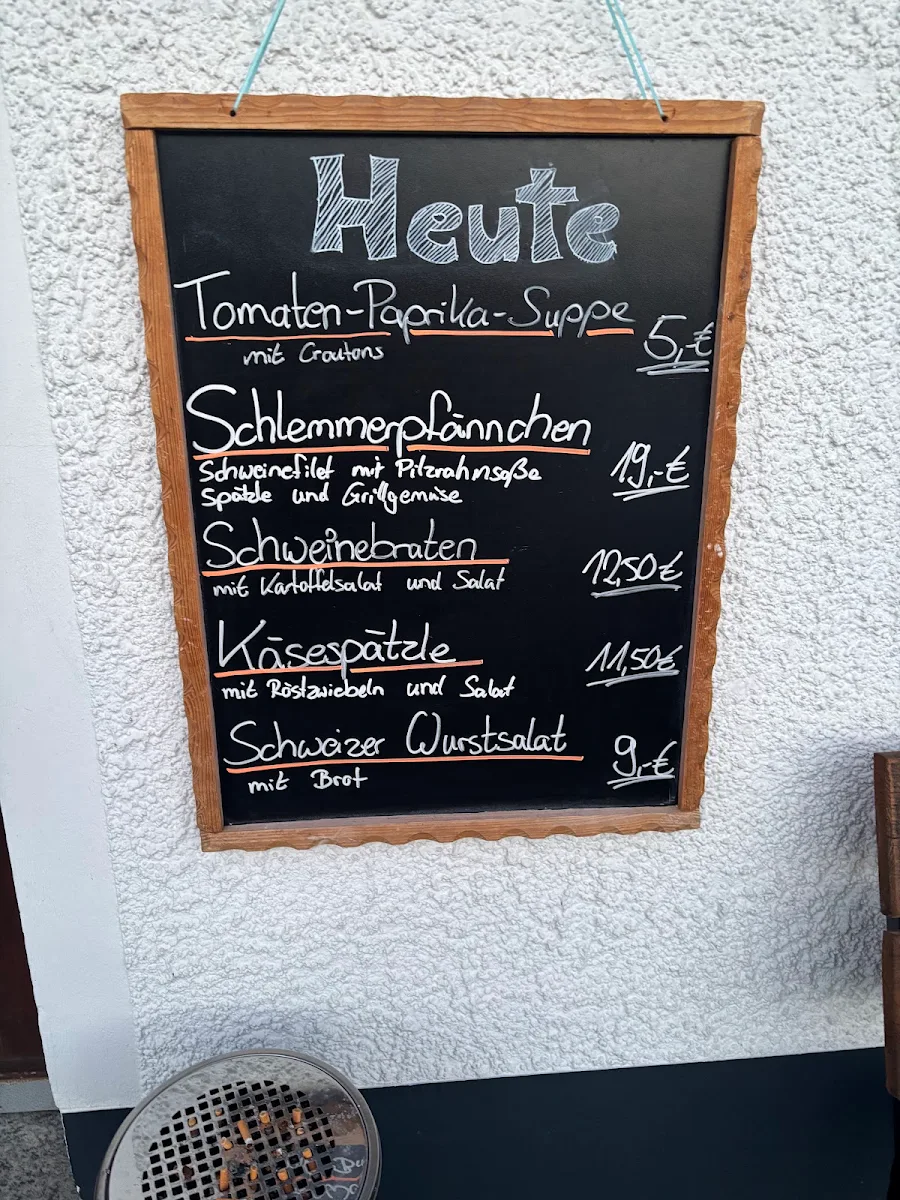 Heute
Tomaten-Paprika-Suppe
mit Croutons
5,-€
Schlemmerpfännchen
Schweinefilet mit Pilzrahmsoße
Spätzle und Grillgemüse
19,-€
Schweinebraten
mit Kartoffelsalat und Salat
12,50€
Käsespätzle
mit Röstzwiebeln und Salat
11,50€
Schweizer Wurstsalat
mit Brot
9,-€